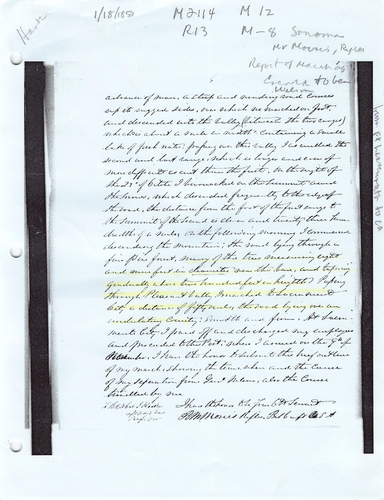 1/18/1850
M2114
M 12
R13
M-8
Sonoma
Mr Morris, Rifles
Report of March
advance of man, a steep and winding road courses
up its rugged sides, over which we marched on foot,
and descended into the valley (between the two ranges)
which is about a mile in width containing a small
lake of fresh water; passing over this valley I ascended the
second and last range, which is longer and even of
more difficult ascent than the first. On the night of
the 21st of Octr I bivouacked on the summit amid
the snows, which descend frequently to the edge of
the road, the distance from the foot of the first range to
the summit of the second is about
miles, on the following morning I commenced
descending the mountains; the road lying through a
fine pine forest. Many of the trees measuring eight
and nine feet in diameter near the base, and tapering
gradually above two hundred feet in height. Passing
through Pleasant valley I reached Sacramento
City a distance of fifty miles, the road lying over an
undulating Country; smooth and firm. At Sacra-
mento City I paid off and discharged my employees
and proceeded to this Post, where I arrived on the 9th of
November. I have the honor to submit this brief outline
of my march, showing the time when and the cause
of my separation from Genl Wilson, also the Course
travelled by me
I have the honor to be Your Obt Servant
R M Morris Rifles